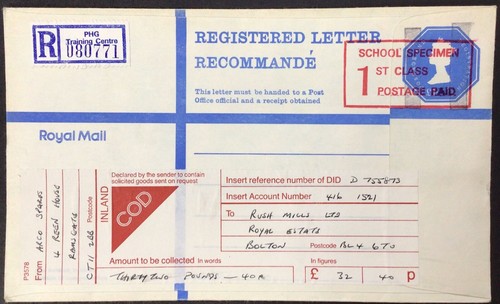 R
PHG
Training Centre
080771
REGISTERED LETTER
RECOMMANDÉ
This letter must be handed to a Post
Office official and a receipt obtained
SCHOOL SPECIMEN
1 ST CLASS
POSTAGE PAID
Royal Mail
P3578
From ARCO SPARES
4 REEN HOUSE
RAMSGATE
Postcode CT11 2BB
INLAND
Declared by the sender to contain
solicited goods sent on request
COD
Insert reference number of DID D 755873
Insert Account Number 416 1521
To RUSH MILLS LTD
ROYAL ESTATE
BOLTON Postcode BL4 6TU
Amount to be collected In words In figures
THIRTY TWO POUNDS — 40P £ 32 40 p